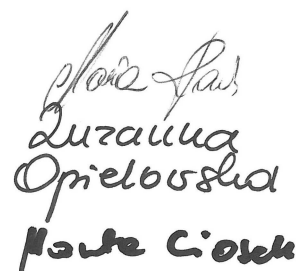 Maria
Zuzanna
Opielowska
Marta Ciosek